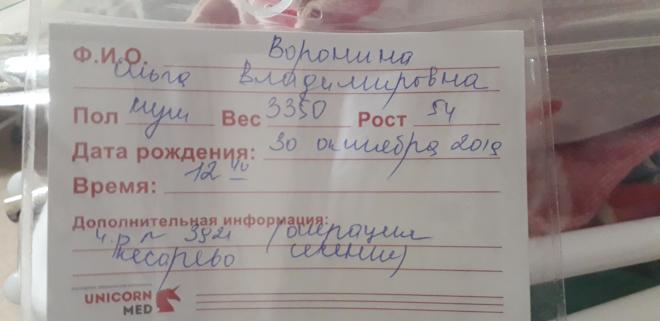 Ф.И.О. Воронина
Ольга Владимировна
Пол муж Вес 3350 Рост 54
Дата рождения: 30 октября 2019
Время: 12
Дополнительная информация:
ч.р № 3921 (операция
кесарево сечение)
UNICORN
MED